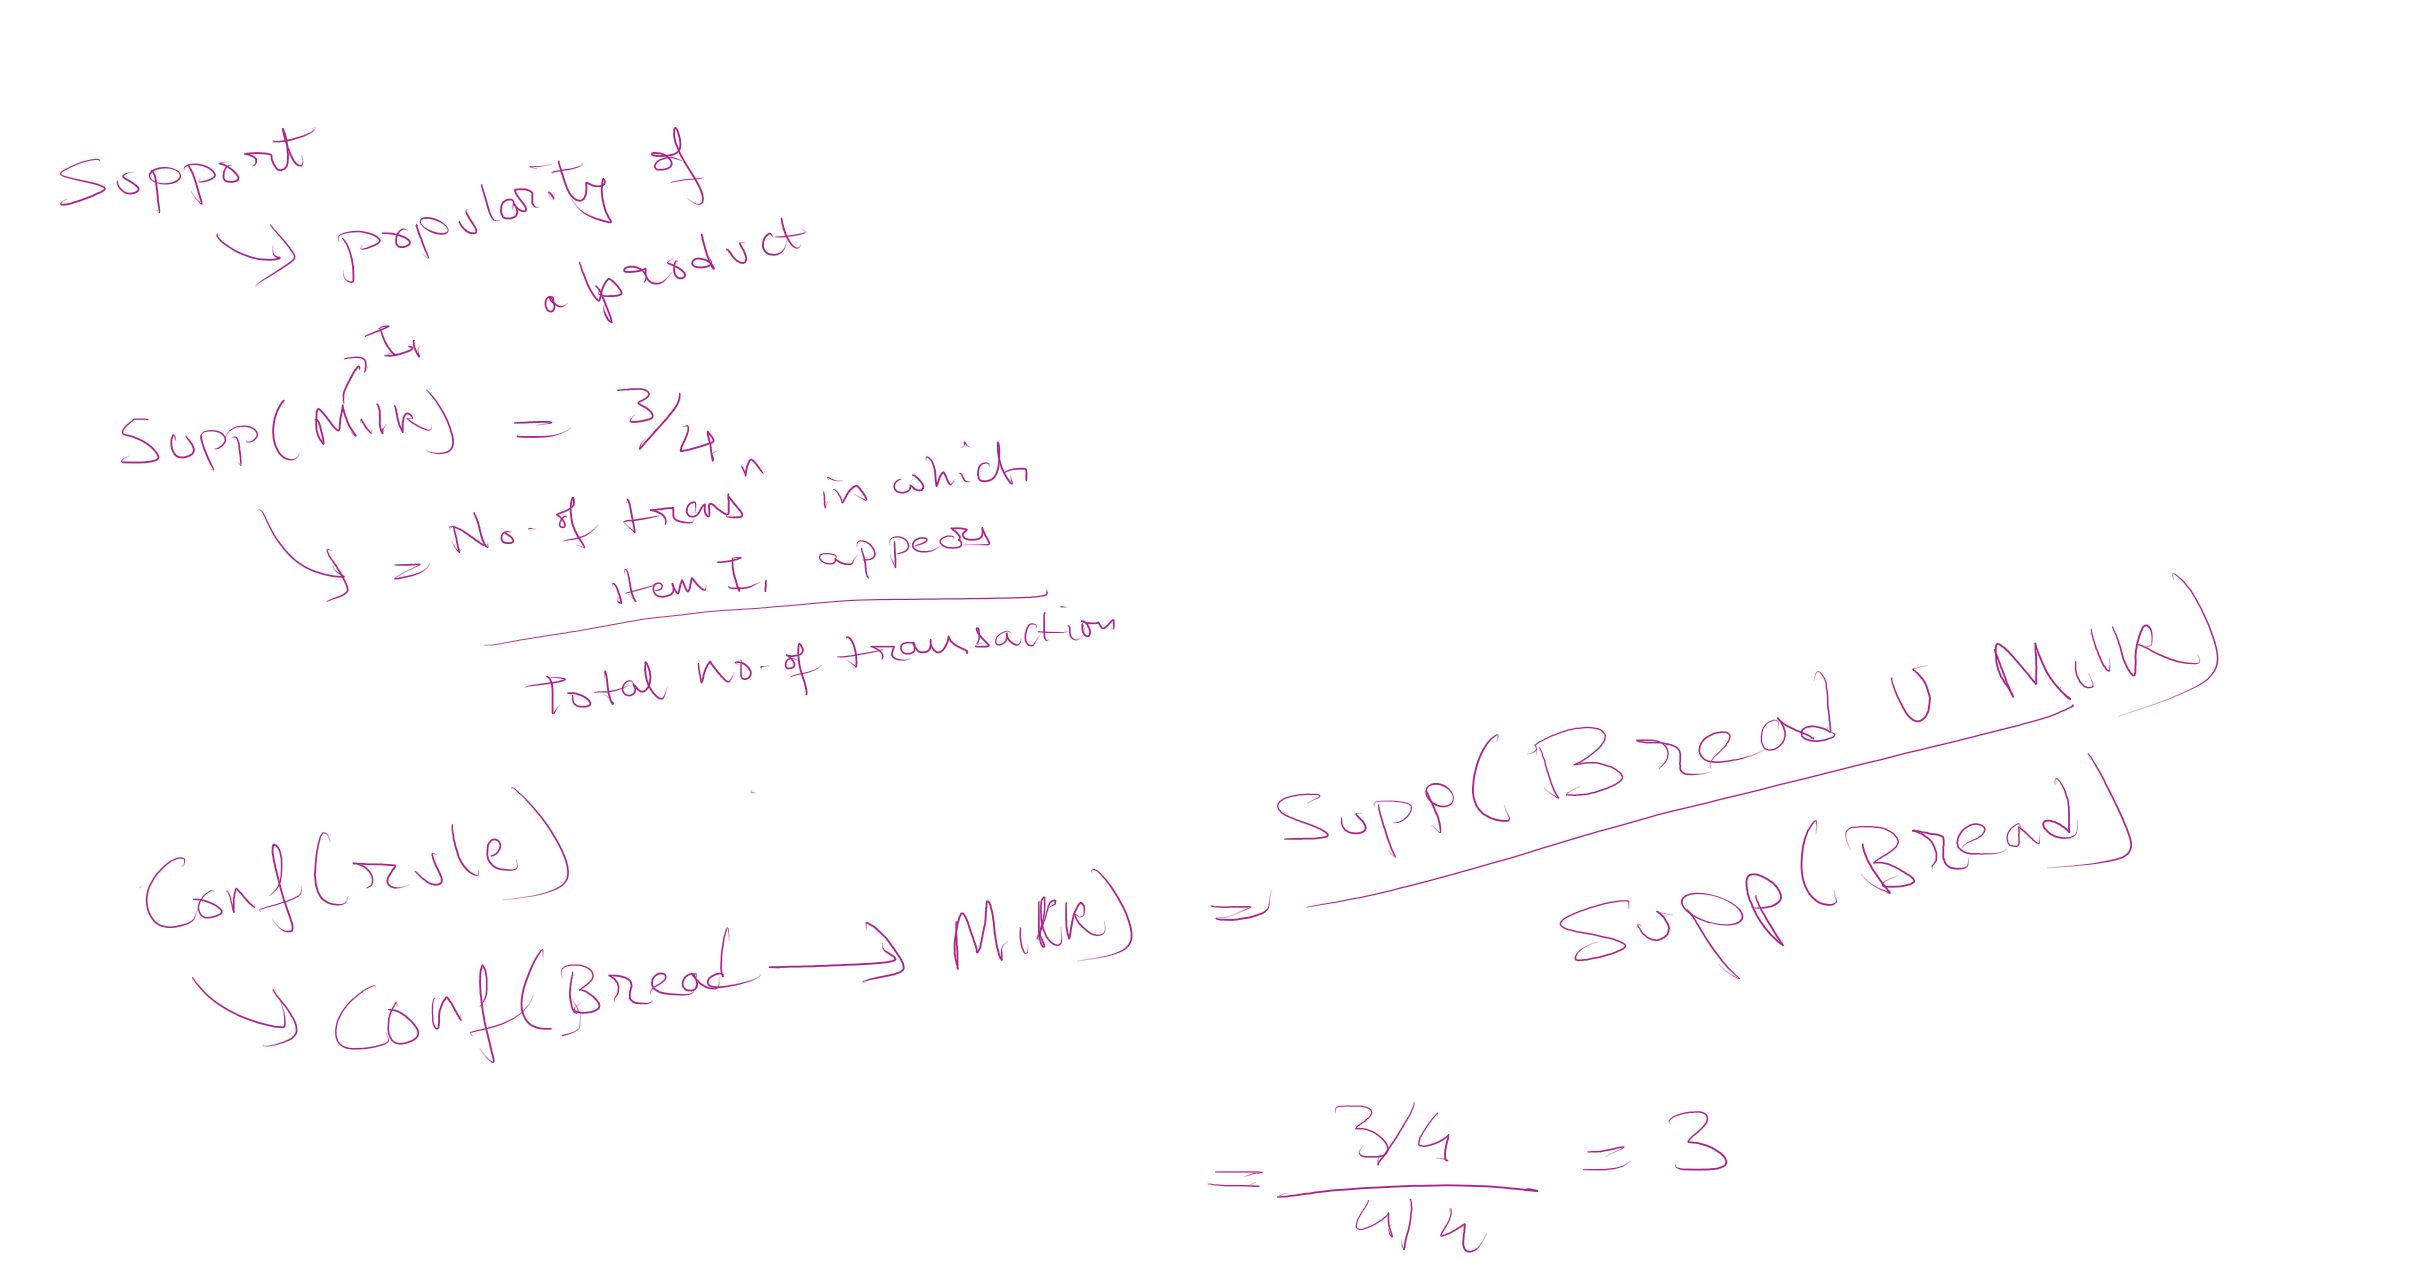 Support
↘ popularity of
a product
I₁
Supp(Milk) = 3/4
↘ = No. of transⁿ in which
item I₁ appears
Total no. of transaction
Conf(rule)
↘ Conf(Bread → Milk) = Supp(Bread ∪ Milk)
Supp(Bread)
= 3/4 = 3
4/4